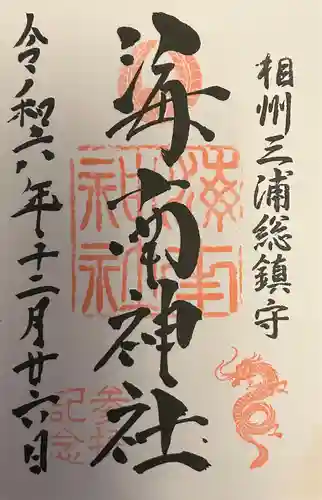 相州三浦総鎮守
海南神社
令和六年十二月廿六日
海南神社
参拝
記念